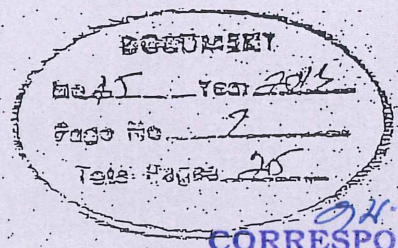 DOCUMENT
No 45 Year 2013
Page No 2
Total Pages 25
CORRESPO